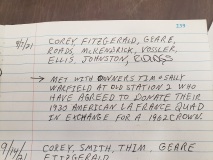 9/7/21 COREY, FITZGERALD, GEARE,
ROADS, McKENDRICK, VOSLER,
ELLIS, JOHNSTON,
→ MET WITH OWNERS TIM & SALLY
WARFIELD AT OLD STATION 2 WHO
HAVE AGREED TO DONATE THEIR
1930 AMERICAN LA FRANCE QUAD
IN EXCHANGE FOR A 1962 CROWN.
9/14/21 COREY, SMITH, THIM, GEARE
FITZGERALD